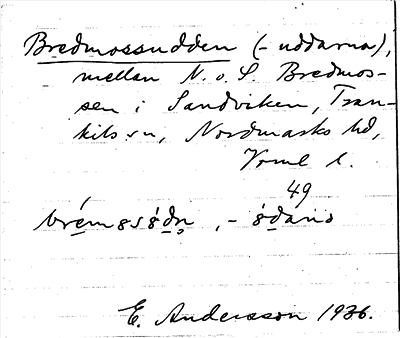 Bredmossudden (- uddarna),
mellan N. o. S. Bredmos-
sen i Sandviken, Tran-
kils sn, Nordmarks hd,
Vrml l.
49
E. Andersson 1936.